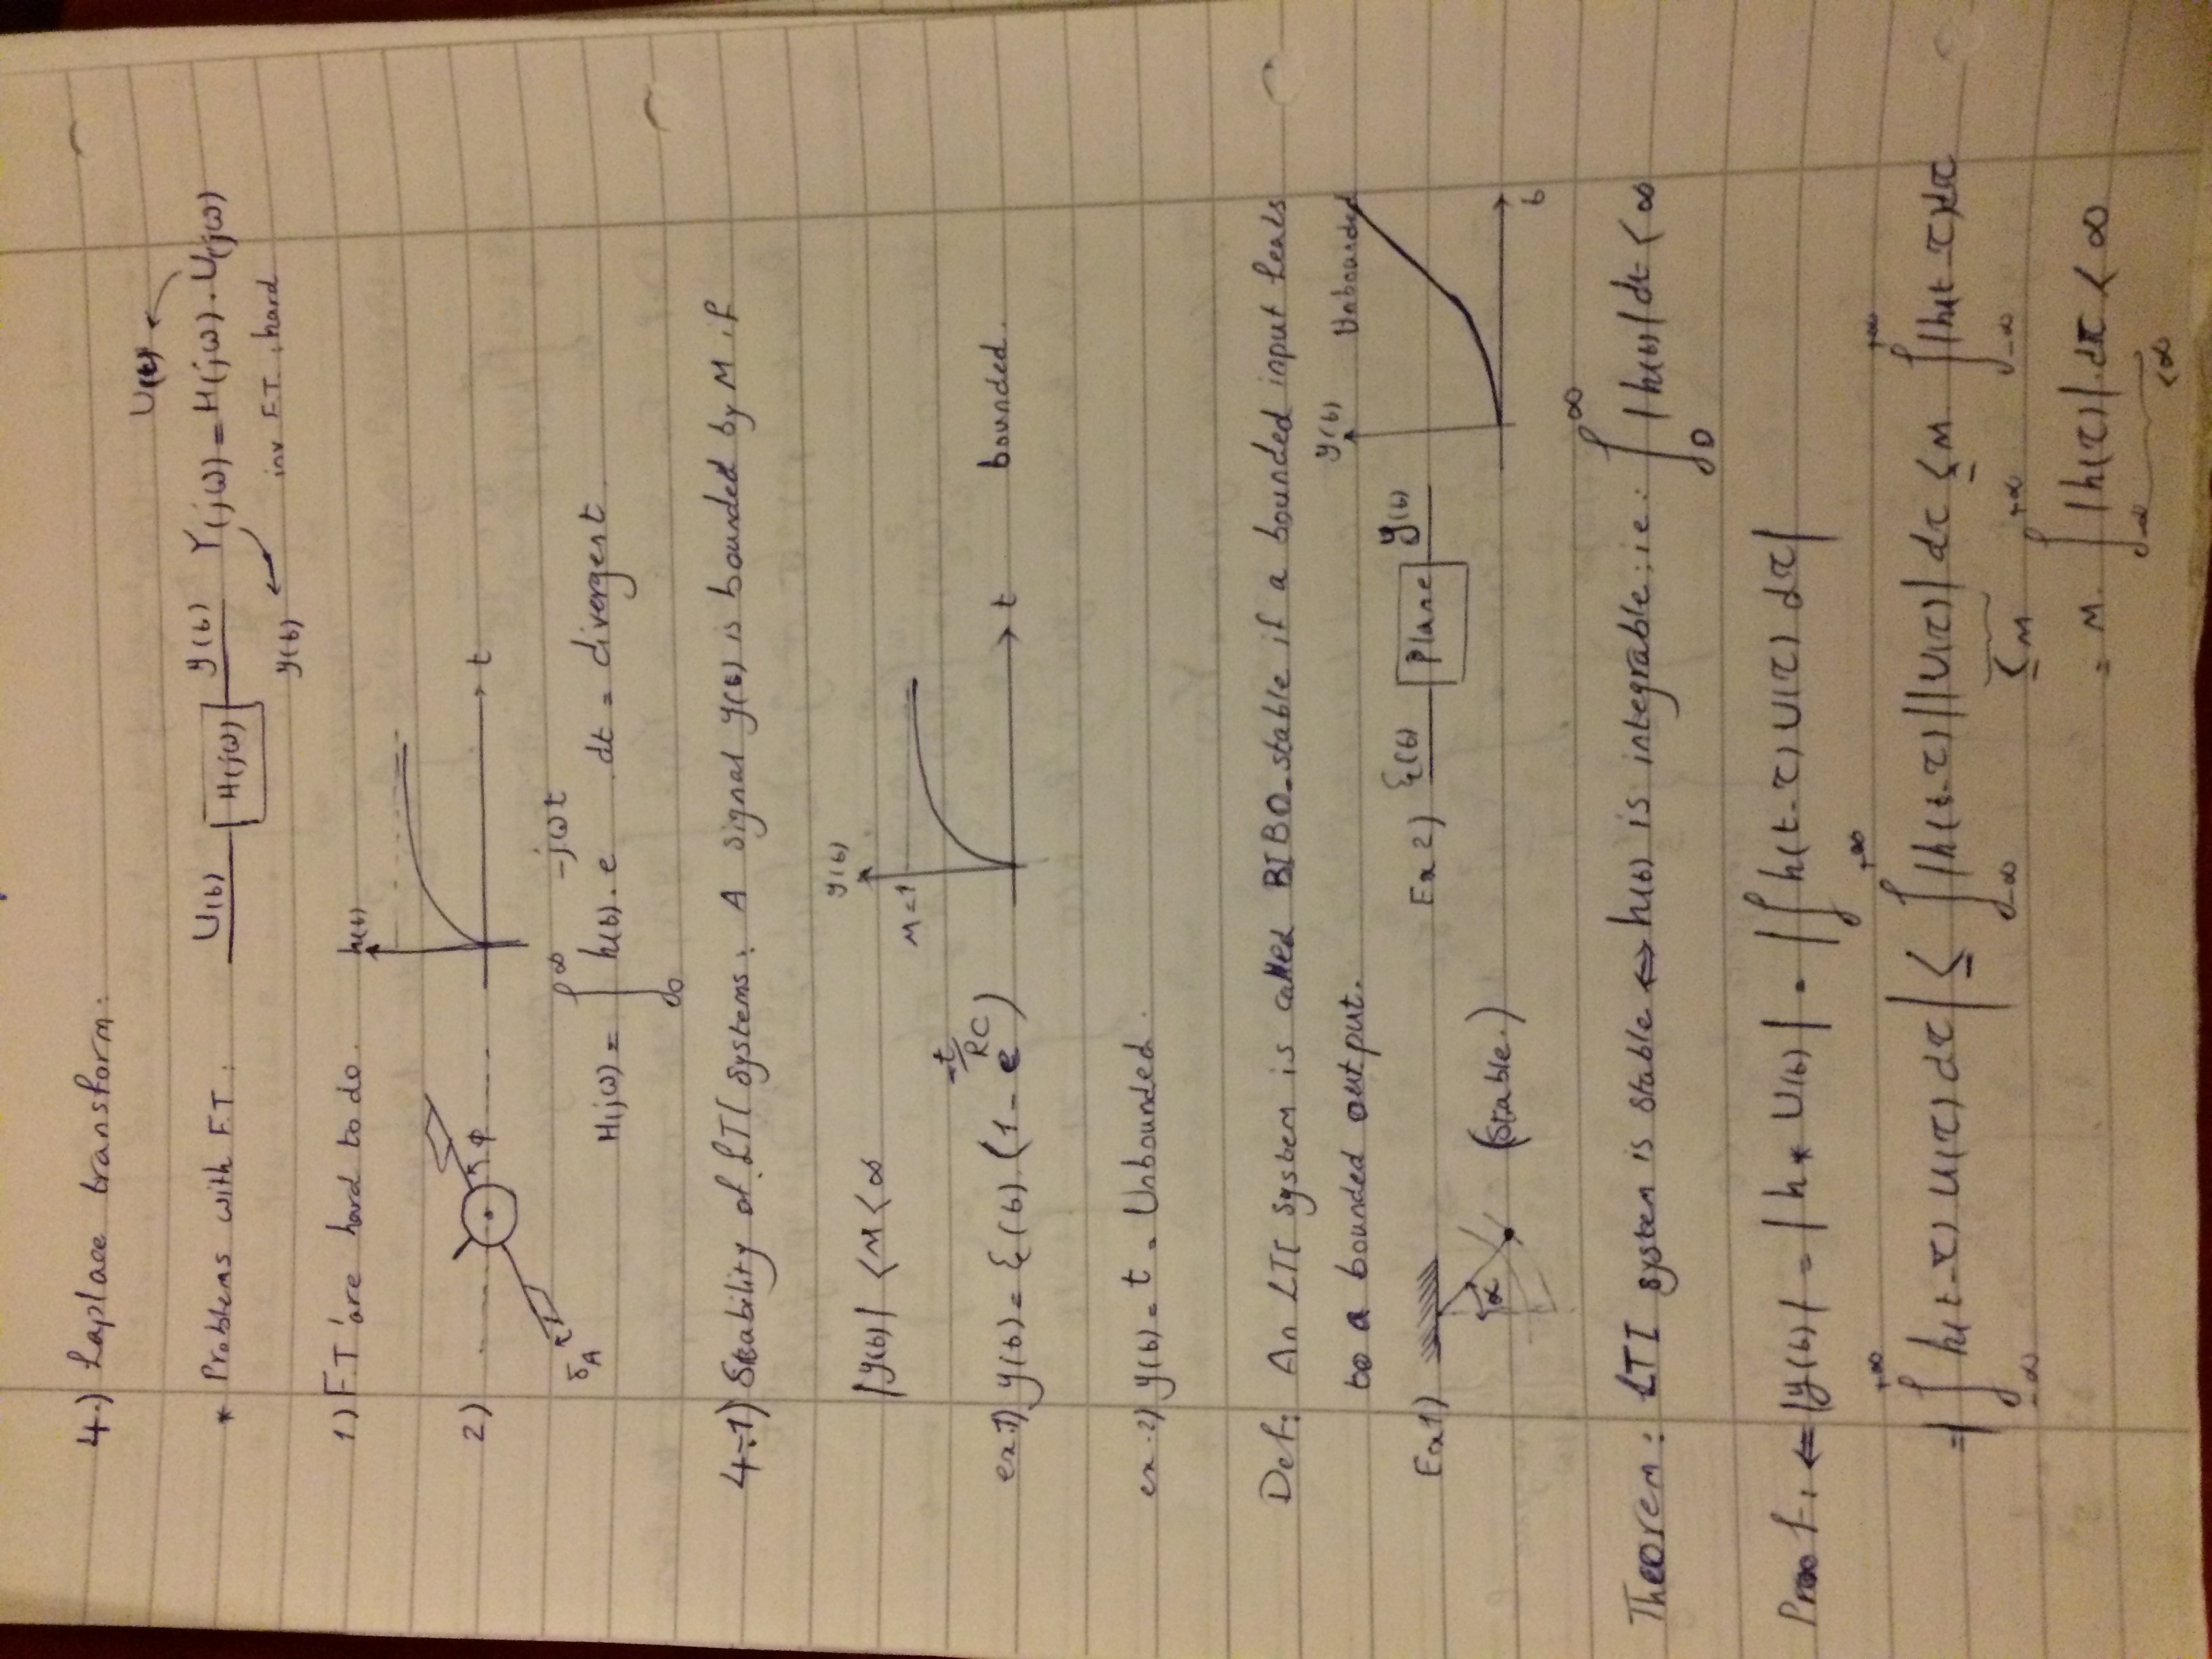 4.) Laplace transform:
U(t)
* Problems with F.T: U(t) H(jω) y(t) Y(jω) = H(jω) . U(jω)
y(t) inv F.T : hard
1) F.T 'are hard to do. h(t)
2) φ t
δA
H(jω) = ∫₀^∞ h(t) . e^{-jωt} . dt = divergent
4.1) Stability of LTI systems: A signal y(t) is bounded by M if
y(t)
|y(t)| < M < ∞ M=1
ex.1) y(t) = ξ(t) . (1 - e^{-t/RC}) t bounded.
ex.2) y(t) = t = Unbounded.
Def: An LTI system is called BIBO-stable if a bounded input leads
to a bounded output. y(t) Unbounded
Ex1) Ex2) ξ(t) Plane y(t)
α (stable.)
t
Theorem: LTI system is stable ⇔ h(t) is integrable; ie: ∫₀^∞ |h(t)| dt < ∞
Proof: ⇐ |y(t)| = |h * U(t)| = |∫ h(t-τ) U(τ) dτ|
= |∫_{-∞}^{+∞} h(t-τ) U(τ) dτ| ≤ ∫_{-∞}^{+∞} |h(t-τ)| |U(τ)| dτ ≤ M ∫_{-∞}^{+∞} |h(t-τ) dτ
≤ M
= M . ∫_{-∞}^{+∞} |h(τ)| . dτ < ∞
< ∞